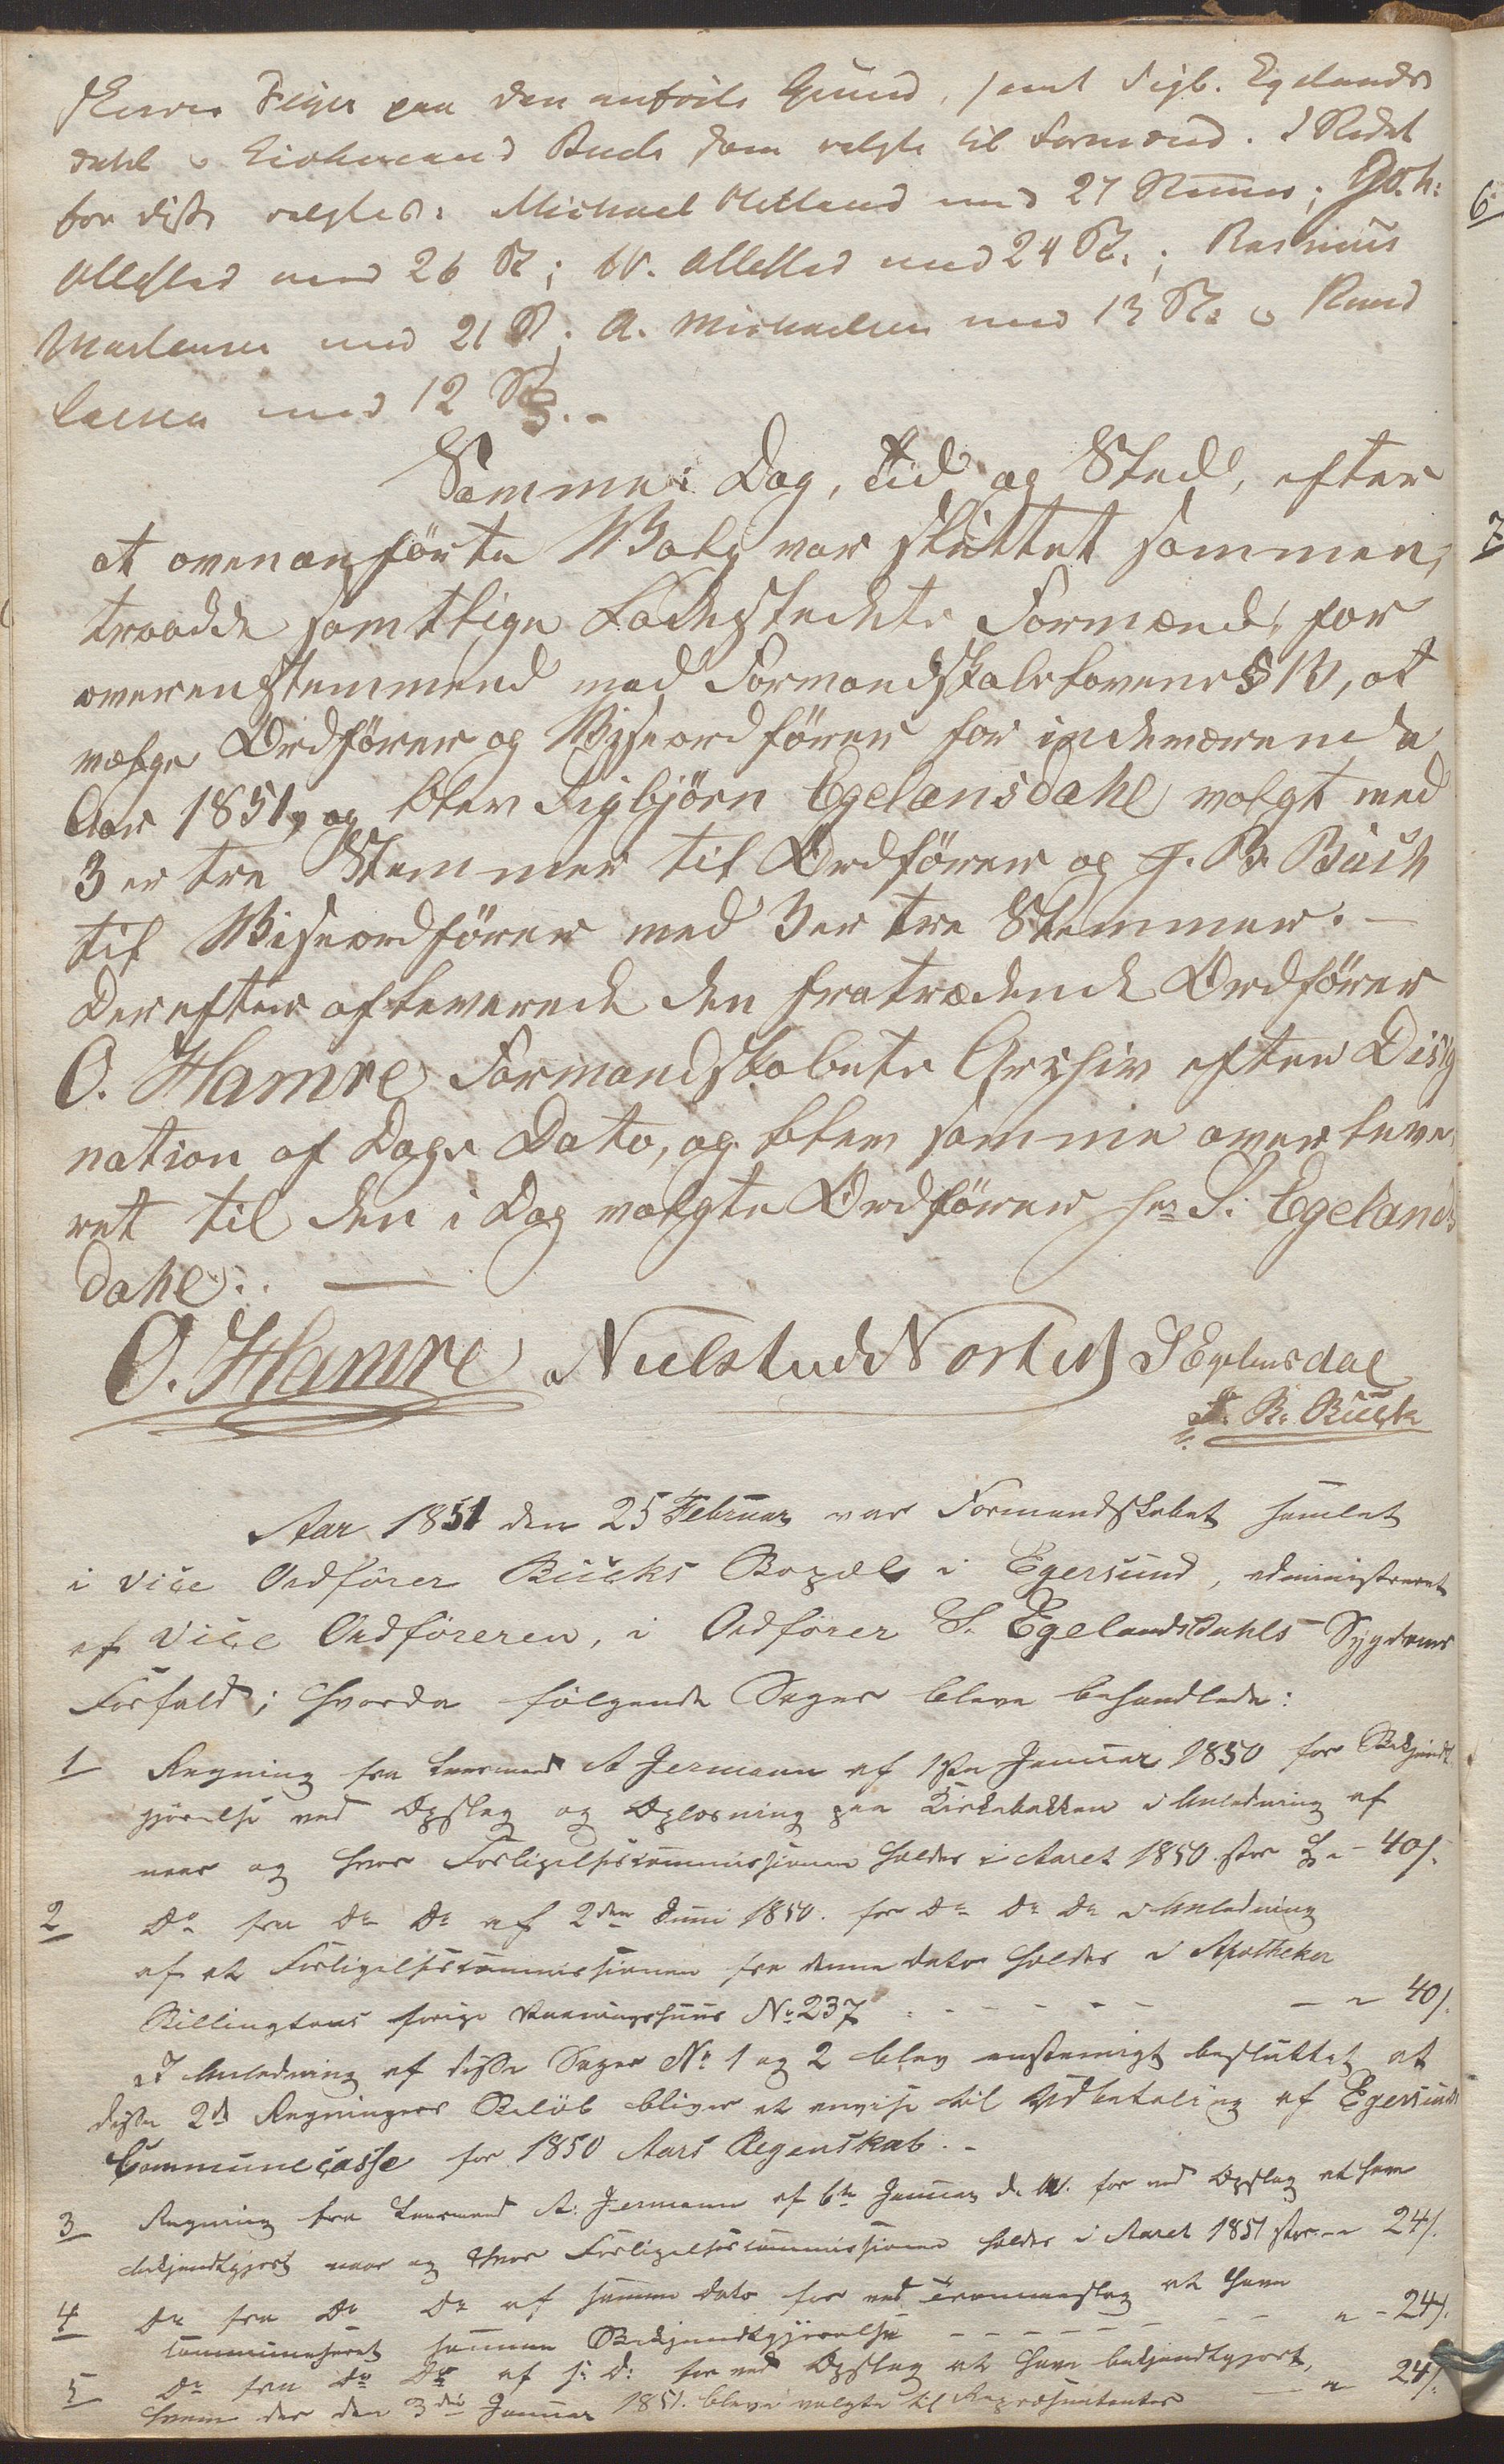 Feyer paa den anförte Grund, samt Sigb. Egelands
dahl og Buck som valgte til Formænd. I Stedet
for disse valgtes: Michael Hetland med 27 Stemmer; Joh:
Ollestad med 26 St; W. Ollestad med 24 St.; Rasmus
Mortensen med 21 St; A. Michaelsen med 13 St. og Knud
Larsen med 12 St.-
Samme Dag, Tid og Sted, efter
at ovenanförte Valg var sluttet sammen,
traadde samtlige Ladestedets Formænd, for
overenstemmend med Formandskabslovens § 13, at
vælge Ordförer og Viseordförer for indeværende
Aar 1851, og blev Sigbjörn Egelansdahl valgt med
3 er tre Stemmer til Ordförer og J. B. Buck
til Viseordförer med 3 er tre Stemmer.-
Derefter afleverede den fratrædende Ordförer
O. Hamre Formandskabets Archiv efter Disig
nation af Dags Dato, og blev samme overleve
ret til den i Dag valgte Ordförer Hr S. Egelands
dahl.. —
O. Hamre S Egelensdal
J. B. Buck
Aar 1851 den 25 Februar var Formandskabet samlet
i vice Ordförer Bucks Bopæl i Egersund, administreret
af vice Ordföreren, i Ordförer S. Egelandsdahls Sygdoms
Forfald; hvorda fölgende Sager bleve behandlede:
1 Regning fra Lensmand A Jermann af 1ste Januar 1850 for Bekjendt
gjörelse ved Opslag og Oplæsning paa Kirkebakken i Anledning af
naar og hvor Forligelsescommissionen holdes i Aaret 1850 stor - 40 s.
2 Do fra Do Do af 2den Juni 1850. for Do Do Do i Anledning
af at Forligelsescommissionen fra denne dato holdes i Apotheker
Killingtons forige Vaaningshuus No 237 - - - - - 40 s.
I Anledning af disse Sager No 1 og 2 blev enstemigt besluttet at
disse 2de Regningers Belöb bliver at anvise til Udbetaling af Egersunds
Communecasse for 1850 Aars Regenskab.-
3 Regning fra Lensmand A: Jermann af 6te Januar d. A. for ved Opslag at have
bekjendtgjort naar og hvor Forligelsescommissionen holdes i Aaret 1851 stor 24 s.
4 Do fra Do Do af samme dato for ved Trommeslag at have
samme Bekjendtgjörelse - - - - - - 24 s.
5 Do fra Do Do af s: d: for ved Opslag at have bekjendtgjort,
hvem der den 3die Januar 1851. bleve valgte til Repræsentanter - 24 s.
6
7